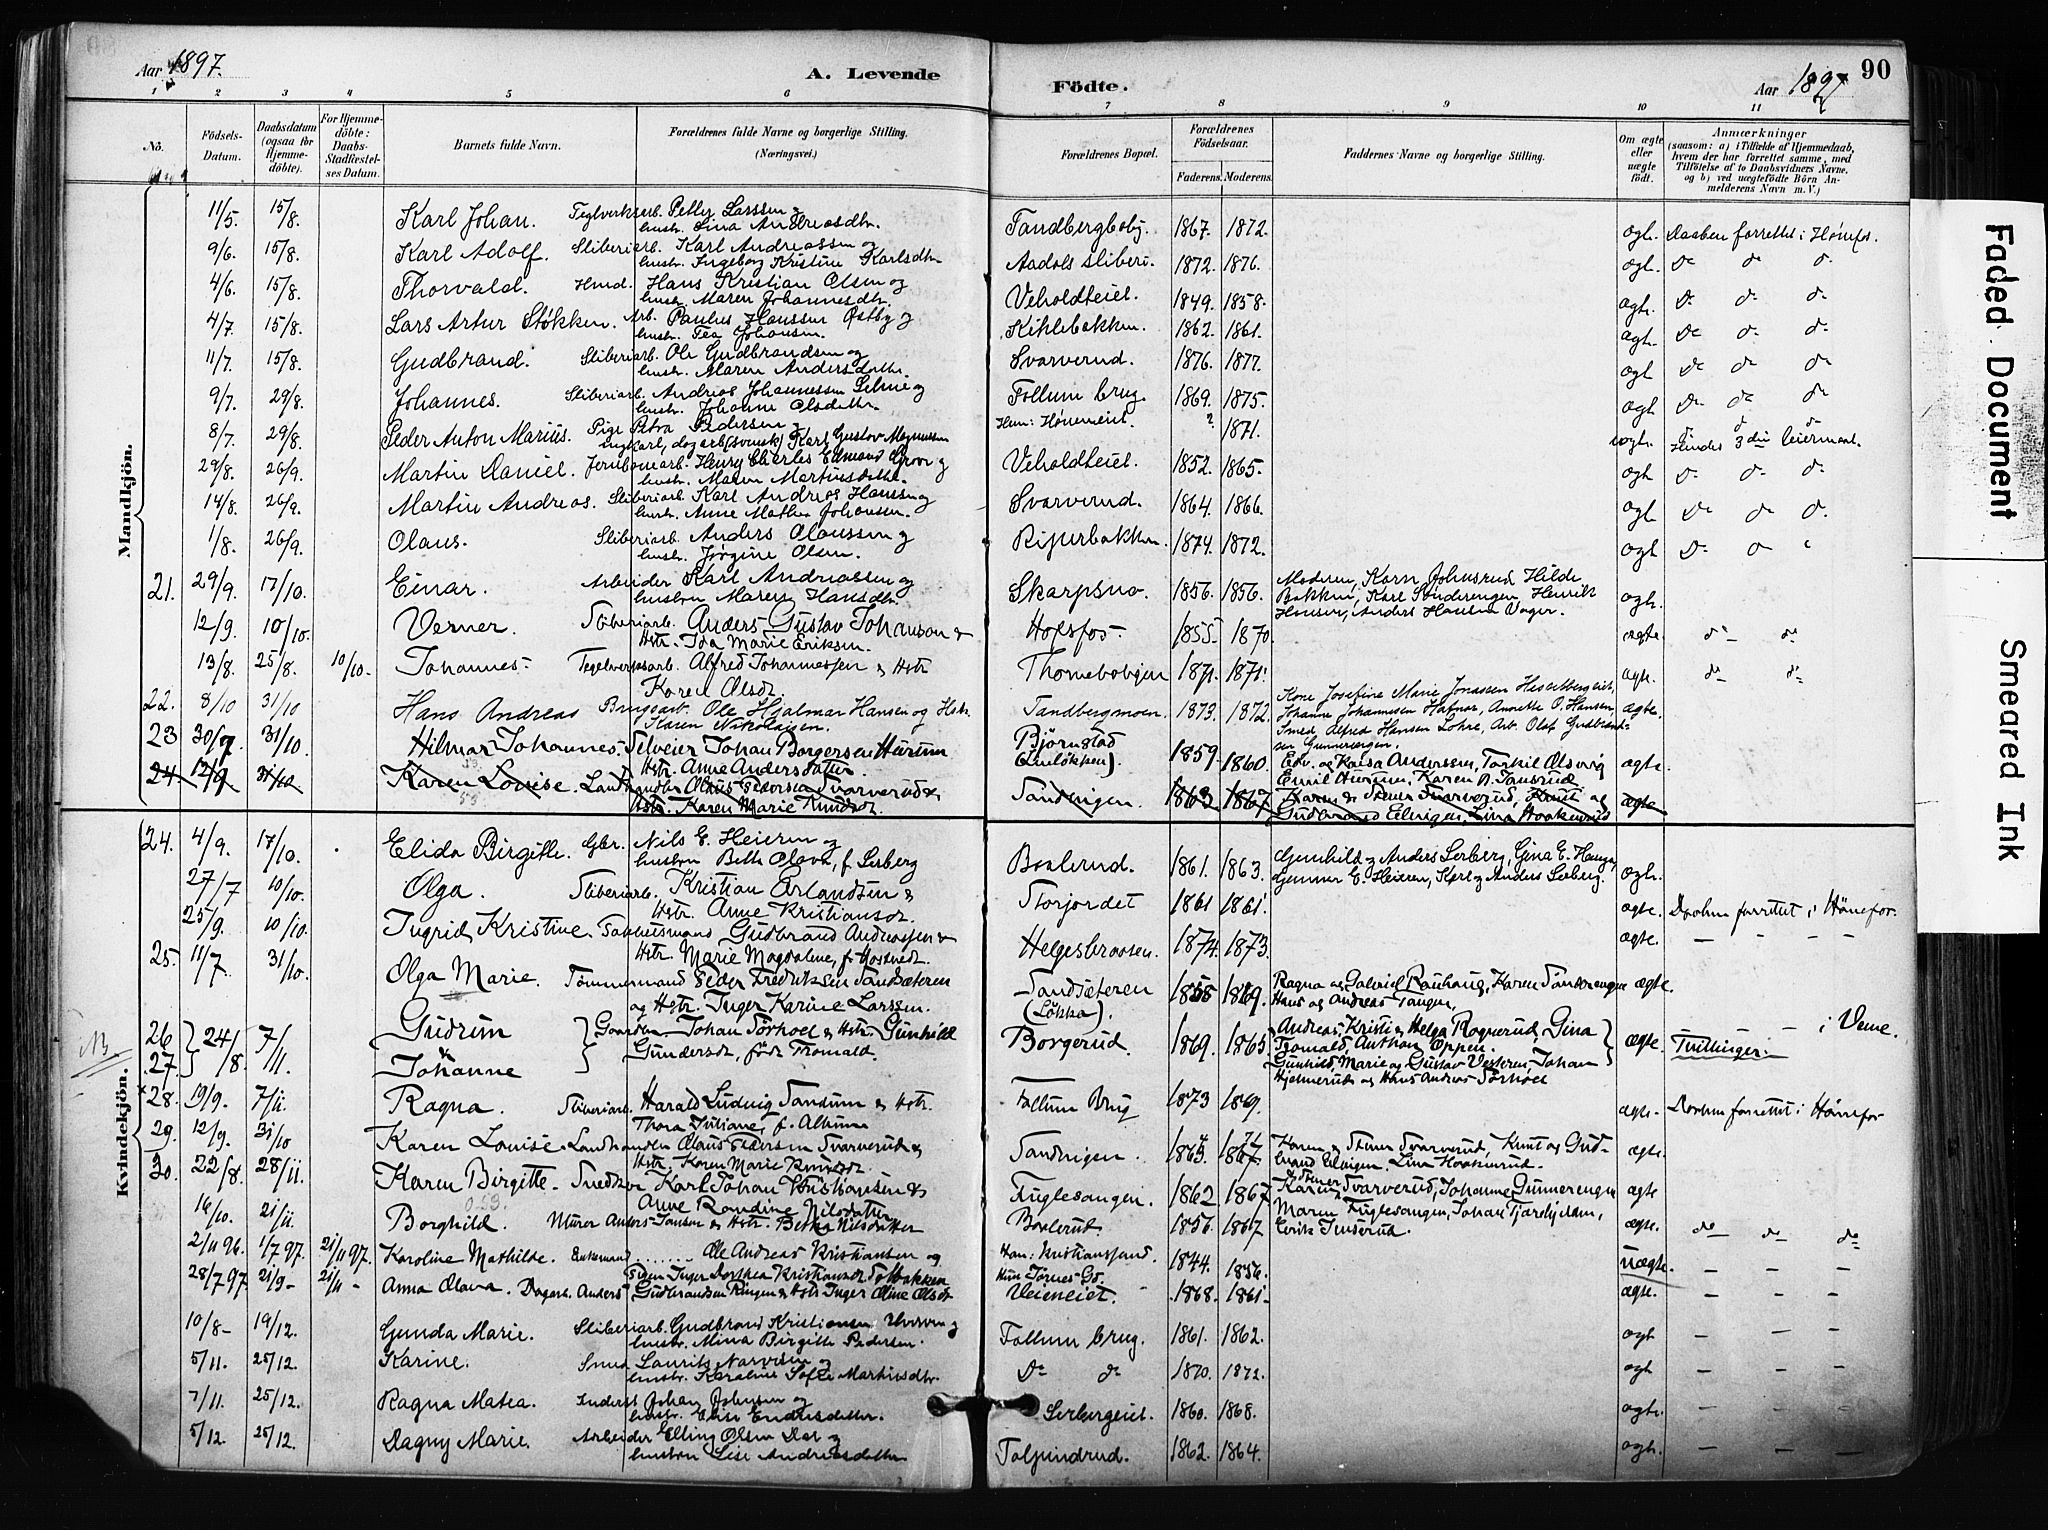 Aar 1897.
A. Levende
Födte.
Aar 1897
90
1 2 3 4 5 6 7 8 9 10 11
No.
Födsels-Datum.
Daabsdatum (ogsaa for Hjemme-döbte).
For Hjemme-döbte: Daabs-Stadfæstel-ses Datum.
Barnets fulde Navn.
Forældrenes fulde Navne og borgerlige Stilling. (Næringsvei.)
Forældrenes Bopæl.
Forældrenes Födselsaar.
Faderens. Moderens.
Faddernes Navne og borgerlige Stilling.
Om ægte eller uægte födt.
Anmærkninger (saasom: a) i Tilfælde af Hjemmedaab, hvem der har forrettet samme, med Tilföielse af to Daabsvidners Navne, og b) ved uægtefödte Börn An-melderens Navn m. V.)
Mandkjön.
11/5. 15/8. Karl Johan. Teglverksarb. Petter Larssen og hustr. Lina Andreasdtr. Tandbergboby. 1867. 1872. ægte. Daaben forrettet i Hønefos.
9/6. 15/8. Karl Adolf. Sliberiarb. Karl Andreassen og hustr. Ingeborg Kristine Karlsdtr. Aadals sliberi. 1872. 1876. ægte. Do do do
4/6. 15/8. Thorvald. Hmd. Hans Kristian Olsen og hustr. Maren Johannesdtr. Veholdteiet. 1849. 1858. ægte. Do do do
4/7. 15/8. Lars Artur Støkken. Arb. Paulus Hanssen Østby og hustr. Tea Johansen. Kihlebakken. 1862. 1861. ægte. Do do do
11/7. 15/8. Gudbrand. Sliberiarb. Ole Gudbrandsen og hustr. Maren Andersdatter. Svarverud. 1876. 1877. ægte Do do do
9/7. 29/8. Johannes. Sliberiarb. Andreas Johannessen Selme og hustr. Johanne Olsdatter. Follum brug. 1869. 1875. ægte Do do do
8/7. 29/8. Peder Anton Marius. Pige Petra Pedersen og ungkarl, dagarb. (svensk) Karl Gustav Magnussen Hun: Hønemeiet. ? 1871. uægte. Hendes 3die leiermaal.
29/8. 26/9. Martin Daniel. Jernbanearb. Henry Charles Edmund Groor og hustr. Maren Martinsdatter. Veholdteiet. 1852. 1865. ægte Do do do
14/8. 26/9. Martin Andreas. Sliberiarb. Karl Andreas Hanssen og hustr. Anne Mathea Johansen. Svarverud. 1864. 1866. ægte Do do do.
1/8. 26/9. Olaus. Sliberiarb. Anders Olaussen og hustr. Jørgine Olsen. Ripurbakken. 1874. 1872. ægte Do
21. 29/9. 17/10. Einar. Arbeider Karl Andreassen og hustru Maren Hansdtr. Skarpsno. 1856. 1856. Moderen, Karn Johnsrud, Hilde Bakken, Karl Sønderengen, Henrik Hansen, Anders Hansen Vager. ægte.
12/9. 10/10. Verner. Sliberiarb. Anders Gustav Johanson & Hstr. Ida Marie Eriksen. Hofsfos. 1855 1870. ægte. do do
13/8. 25/8. 10/10. Johannes. Tegelverksarb. Alfred Johannessen & Hstr Karen Olsdt. Thornebobyen 1871. 1871. ægte. do do
22. 8/10 31/10 Hans Andreas Brugsarb. Ole Hjalmar Hansen og Hstr. Karen Nikolaisen. Tandbergmoen. 1873. 1872. Kone Josefine Marie Jonassen Hesselbergeiet, Johanne Johannessen Hafnor, Annette O. Hansen, Smed Alfred Hansen Lohre, Arb. Olaf Gudbrandsen Gunnerengen. ægte.
23 30/7. 31/10. Hilmar Johannes. Selveier Johan Borgersen Hurum Hstr. Anne Andersdatter. Bjørnstad (Enløkken). 1859. 1860. Edv. og Kaisa Anderssen, Torkil Olsvig Emil Hurum, Karen A. Jansrud ægte.
24 12/9 31/10 Karen Louise. Landhandler Olaus Pedersen Svarverud & Hstr. Karen Marie Knudsdt. Sandvigen. 1863 1867 Karen & Stener Svarverud, Knut og Gudbrand Elvigen, Lina Haakenrud ægte
Kvindekjön.
24. 4/9. 17/10. Elida Birgitte. Gbr. Nils E. Heieren og hustru Beth. Olava, f. Lerberg Boslerud. 1861. 1863. Gunhild og Anders Lerberg, Gina E. Haugen, Gunnar E. Heieren, Karl og Anders Lerberg. ægte.
27/7 10/10. Olga. Sliberiarb. Kristian Erlandsen & Hstr. Anne Kristiansdt. Storjordet 1861 1861. ægte. Daaben forrettet i Hønefos.
25/9. 10/10. Ingrid Kristine. Gudbrand Andreassen & Hstr. Marie Magdalene, f. Helgesbraaten. 1874. 1873. ægte. — — — —
25. 11/7. 31/10. Olga Marie. Tømmermand Peder Fredriksen Sandsæteren og Hstr. Inger Karine Larssen. Sandsæteren (Løkka). 1858 1869. Ragna og Gabriel Rauhaug, Karen Sønderengen Hans og Andreas Tangen. ægte.
NB 26. 27. 24/8. 7/11. Gudrun Johanne Gaardbr. Johan Sørhoel & Hstr. Gunhild Gundersdt, född Tromald. Borgerud. 1869. 1865. Andreas, Kristi & Helga Ragnerud, Gina Tromald, Anthon Oppen. Gunhild, Marie og Gustav Vesteren, Johan Hjelmerud & Hans Andreas Sørhoel ægte. Tvillinger. — i Veme.
28. 19/9. 7/11. Ragna. Sliberiarb. Harald Ludvig Sandum & Hstr. Thora Juliane, f. Follum Brug 1873 1869. ægte. Daaben forrettet i Hønefos
29. 12/9. 31/10 Karen Louise. Landhandler Olaus Pedersen Svarverud & Hstr. Karen Marie Knudsdt. Sandvigen. 1863. 1867. Karen & Stener Svarverud, Knut og Gudbrand Elvigen Lina Haakenrud. ægte.
30. 22/8. 28/11. Karen Birgitte. Snedker Karl Johan Kristiansen & Anne Randine Nilsdatter Fuglesangen. 1862 1867 Karen, Stener Svarverud, Johanne Gunnerengen Maren Fuglesangen, Johan Tjærhjelm, Eerik Juserud. ægte
16/10. 21/11. Borghild. Murer Anders Jansen & Hstr. Berthe Nilsdatter Boslerud. 1856. 1867 ægte. do do do
2/11 96. 1/7 97. 21/11 97. Karoline Mathilde. Enkemand ....... Ole Andreas Kristiansen og Pigen Inger Dorthea Kristiansdt Solbakken Han: Kristianssund. Hun Tornes Gd. 1844. 1856. uægte. — — —
28/7 97. 21/9 - 21/11 - Anna Olava. Dagarb. Anders Gudbrandsen Ringen & Hstr Inger Oline Olsdt. Veieneiet. 1868. 1861. ægte. — — —
10/8 - 19/12. Gunda Marie. Sliberiarb. Gudbrand Kristiansen og hustr. Mina Birgitte Pedersen. Follum brug. 1861. 1862. ægte — — —
5/11. 25/12. Karine. Smed Laurits Narvesen og hustr. Karoline Sofie Martinsdtr. Do do 1870. 1872. ægte — — —
7/11. 25/12. Ragna Matea. Inderst Johan Johnsen og hustr. Elise Endresdatter. Lerbergeiet. 1860. 1868. ægte. — — —
5/12. 25/12. Dagny Marie. Arbeider Elling Olsen Dal og hustru Lise Andreasdatter Tolpinrud. 1862. 1864. ægte. — — —
Faded Document
Smeared Ink